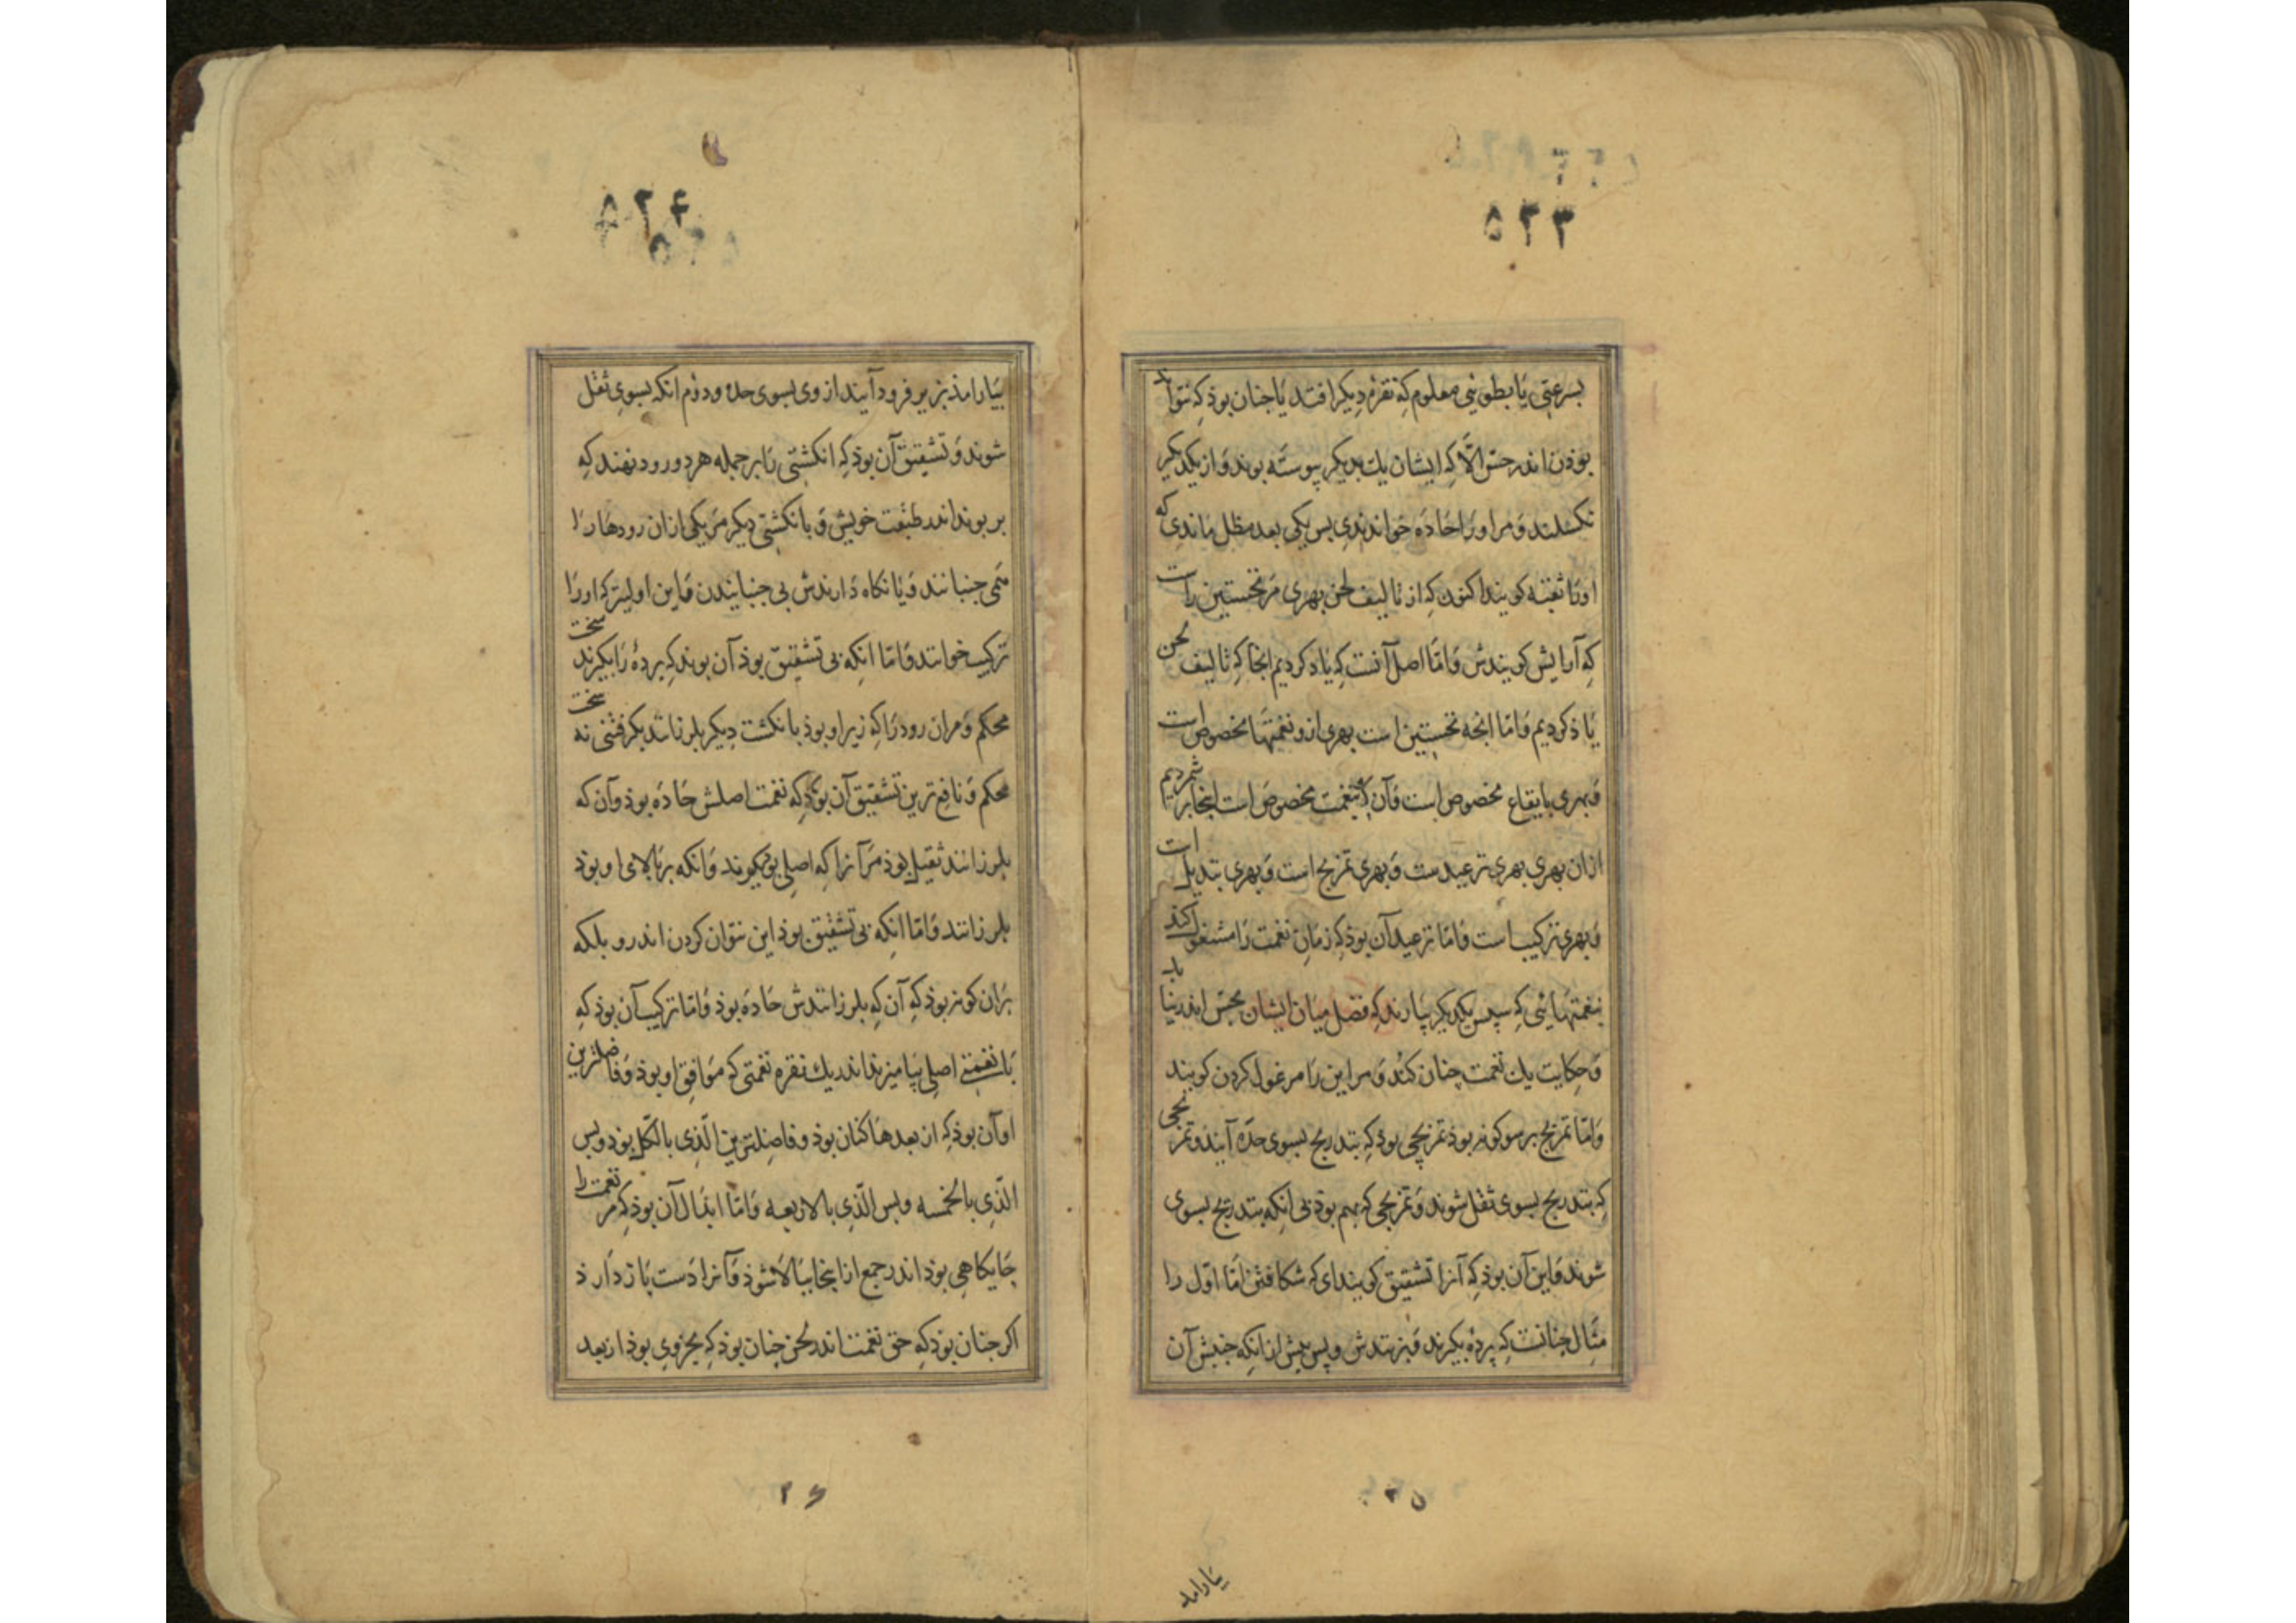 ۵۲۳
بسرعتی یا بطوئی معلوم کِه نقرهٔ دیکر افتد یا جنان بوذ کِه نتوا
بوذن اندر حس الّا کِه ایشان یك بدیکر پیوسته بوند وَ از یکدیکر
نکسلند وَ مر اورا حادّه خواندندی بس یکی بعد مطل ماندی که
اورا ثقیله کویند اکنون کِه از تألیف لحن بهری مَر نخستین راست
کِه آرایش کویندش وَ امّا اصل آنست کِه یاد کردیم انجا کِه تالیف لحن
یاذ کردیم وَ امّا انجه نخستین است بهری ازو نغمتها مخصوص است
وَ بهری بایقاع مخصوص است وَ آن کِه بنغمت مخصوص است اینجا بر شمردیم
ازان بهری بهری ترعیدست وَ بهری تمزیج است وَ بهری تبدیل است
وَ بهری ترکیب است وَ امّا ترعید آن بوذ کِه زمانِ نغمت رَا مشغول کند
بنغمتهائی کِه سپس یکدیکر بیارند کِه فصل میان ایشان بحس اندر نیا یذ
وَ حکایت یك نغمت چنان کنُد وَ مر این رَا مرغول کردن کویند
وَ امّا تمزیج بر سو کونه بوذ تمزیجی بوذ کِه بتدریج بسوی حدّه آیند وَ تمز یجی
کِه بتدریج بسوی ثقل شوند وَ تمزیجی کِه بهم بوَذ بی انکِه بتدریج بسوی
شوند وَ این آن بوذ کِه آنرا تشقیق کویند ای کِه شکافتن امّا اوّل را
مِثال جنانست کِه پردهٔ بکیرند وَ بزنندش و پس بیش از انکِه جنبش آن
۲۵
بیارامذ
۵۲۴
بیارامذ بزیر فرود آیند از وی بسوی حدّه و دوُم انکه بسوی ثقل
شوند وَ تشقیق آن بوذ کِه انکشتی رَا بر جمله هر دو رود نهند کِه
بر بوند اندر طبقت خویش وَ بانکشتی دیکر مَر یکی ازان رودهارَا
مَی جنبانند وَ یا نکاه دارندش بی جنبانیدن وَ این اولیتر کِه اورَا
ترکیب خوانند وَ امّا انکِه بی تشقیق بوذ آن بوند کِه پردهٔ رَا بکیرند سخت
محکم وَ مران رود رَا کِه زیر او بوذ بانکشت دیکر بلرزانند بکرفتنی نه سخت
محکم وَ نافع ترین تشقیق آن بوَذ کِه نغمت اصلش حادّه بوذ و آن که
بلرزانند ثقیل بوذ مَر آنرا کِه اصلی بوذ کیوند وَ انکه بر بالای او بوذ
بلرزانند وَ امّا انکِه بی تشقیق بوذ این نتوان کردن اندرو بلکه
بَران کونه بوذ کِه آن کِه بلرزانندش حادّه بوذ وَ امّا ترکیب آن بوذ کِه
با نغمتی اصلی بیامیزند اندر یك نقره نغمتی کِه موافق او بوذ وَ فاضلترین
او آن بوذ کِه از بعدهَا کنان بوذ و فاضلترین الّذی بالکلّ بوذ و بس
الّذی بالخمسه و بس الّذی بالاربعه وَ امّا ابدال آن بوذ کِه مر نغمت را
جایکاهی بوذ اندر جمع از انجا ببالا شوذ وَ آنرا دست بَاز دارذ
اکر جنان بوذ کِه حق نغمت اندر لحن جنان بوذ کِه بجزوی بوذ از بعد
۲۶